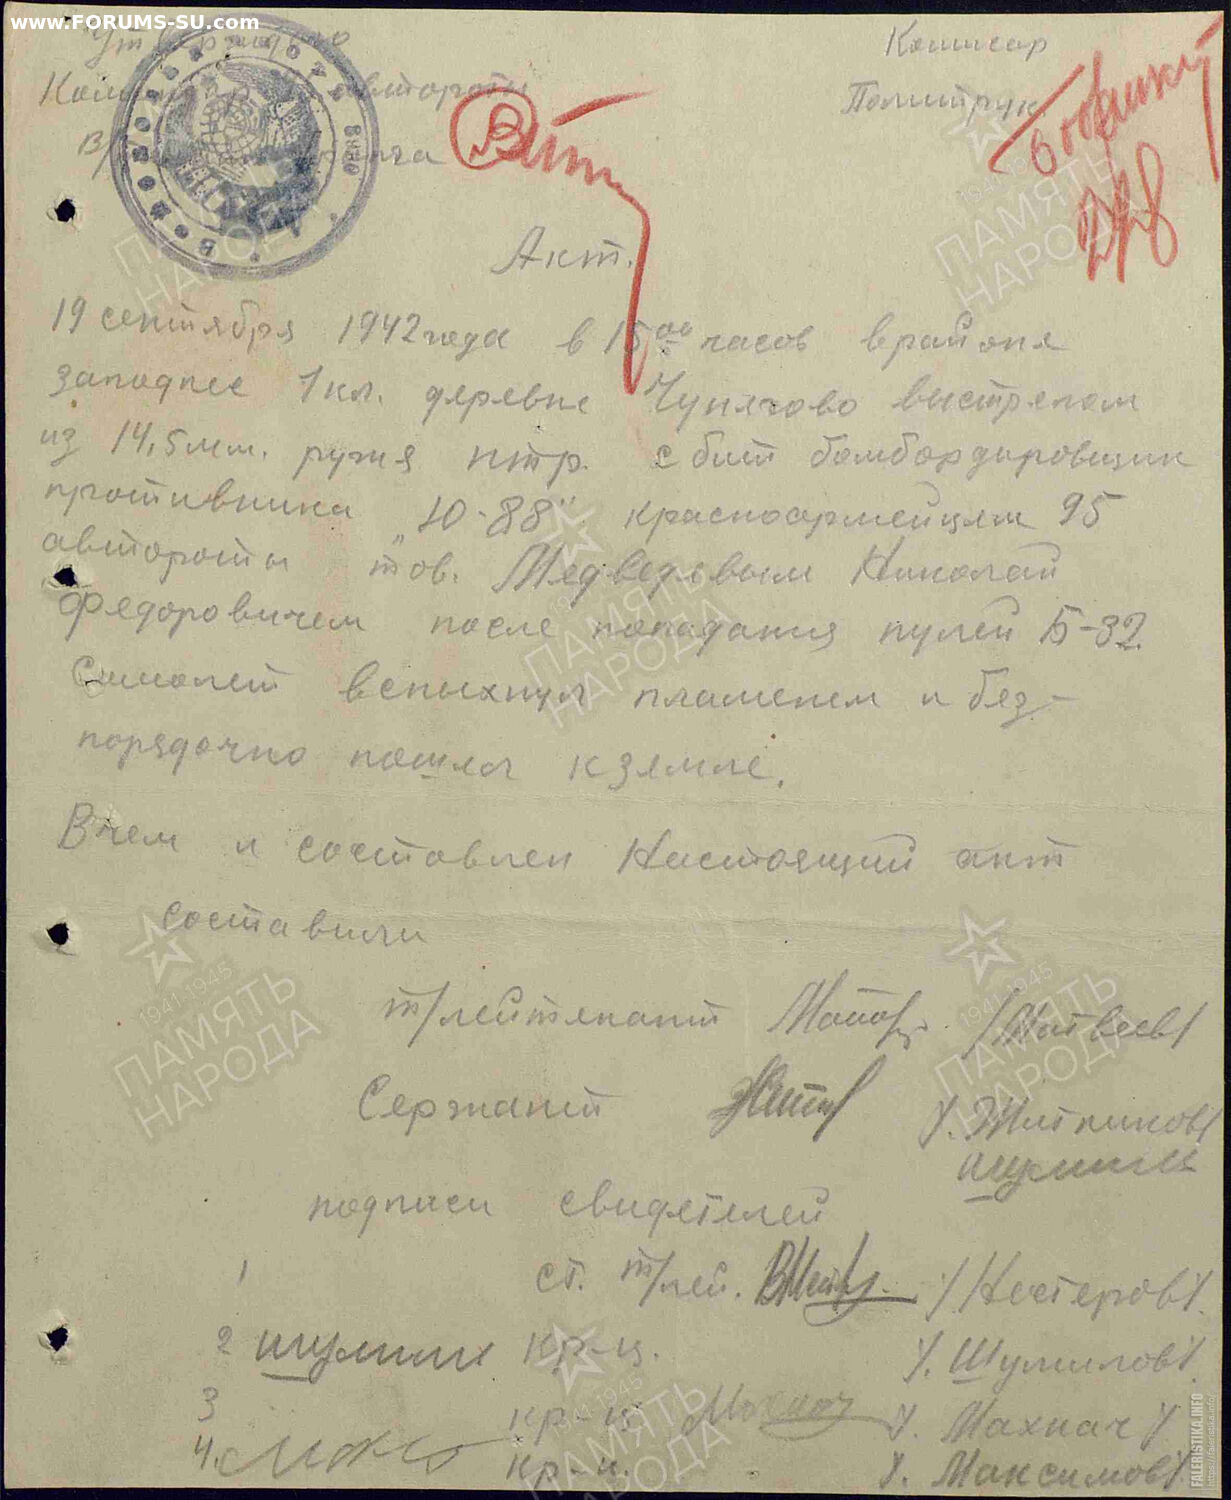 www.FORUMS-SU.com
Утверждаю
Комиссар
автороты
Политрук
Акт.
19 сентября 1942 года в 15 00 часов в районе
западнее 1 кл. деревне Чунягово выстрелом
из 14,5 мм. ружя птр. сбит бомбардировщик
противника „Ю-88" красноармейцем 95
автороты тов. Медведевым Николай
Федоровичем после попадания пулей Б-32
Самолет вспыхнул пламенем и без-
порядочно пошел к земле.
В чем и составлен Настоящий акт
составили
т/лейтенант /Матвеев/
Сержант /. Житников/
шумил
подписи свидетелей
1 ст. т/лей. /Нестеров/.
2 шумил кр-ц. /. Шумилов/
3 кр-ц Махнач /. Махнач/
4. кр-ц. /. Максимов/.
ПАМЯТЬ НАРОДА
1941-1945
FALERISTIKA.INFO
https://faleristika.info